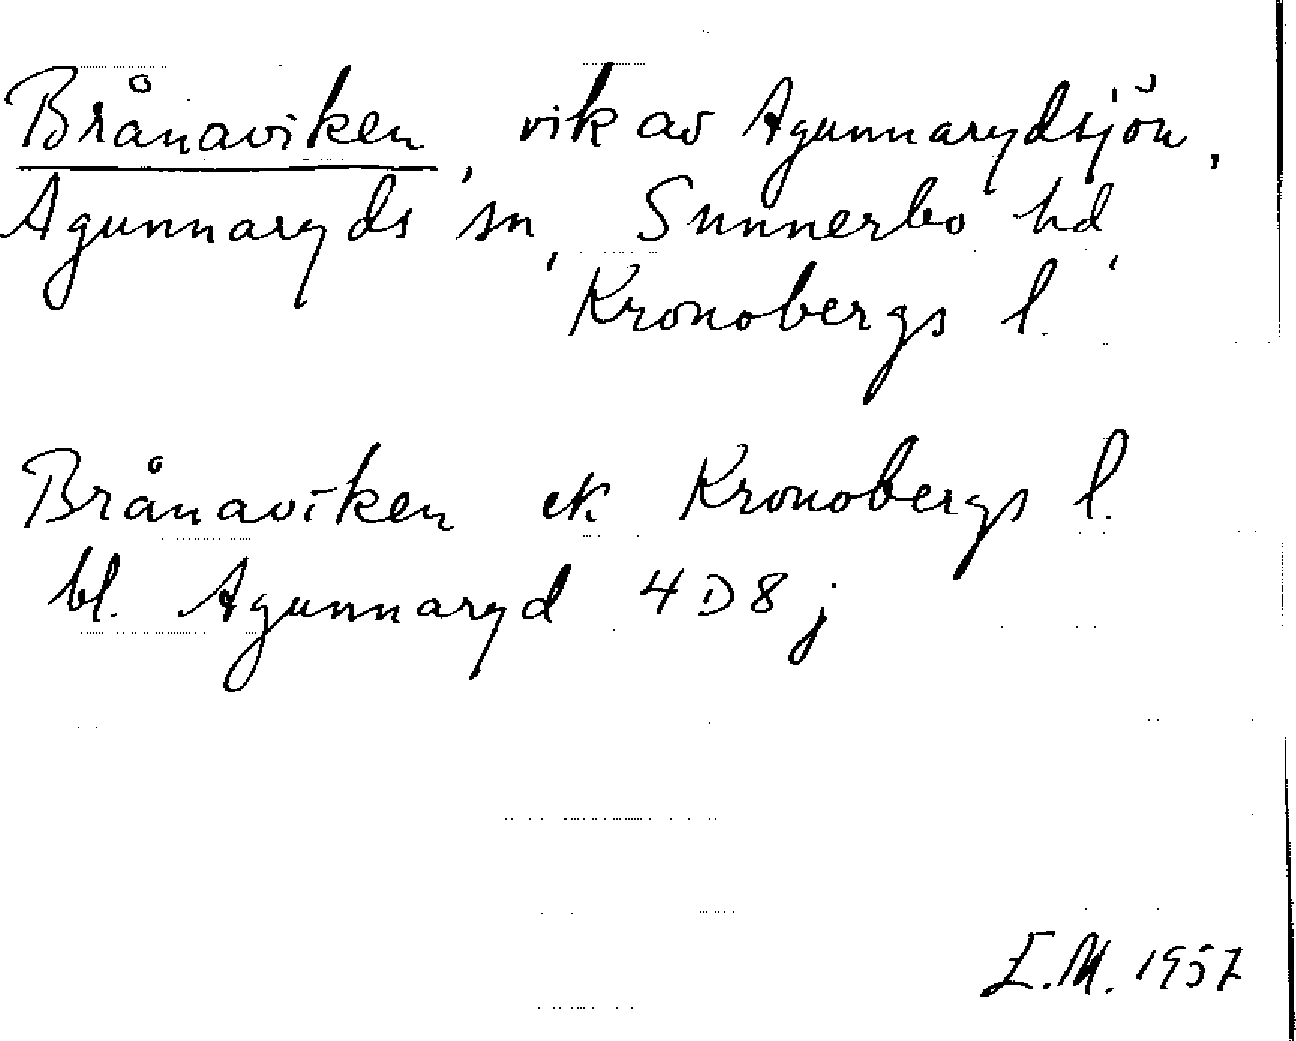 Brånaviken, vik av Agunnarydsjön,
Agunnaryds sn, Sunnerbo hd,
Kronobergs l.
Brånaviken ek. Kronobergs l.
bl. Agunnaryd 4D8j
E.M. 1957